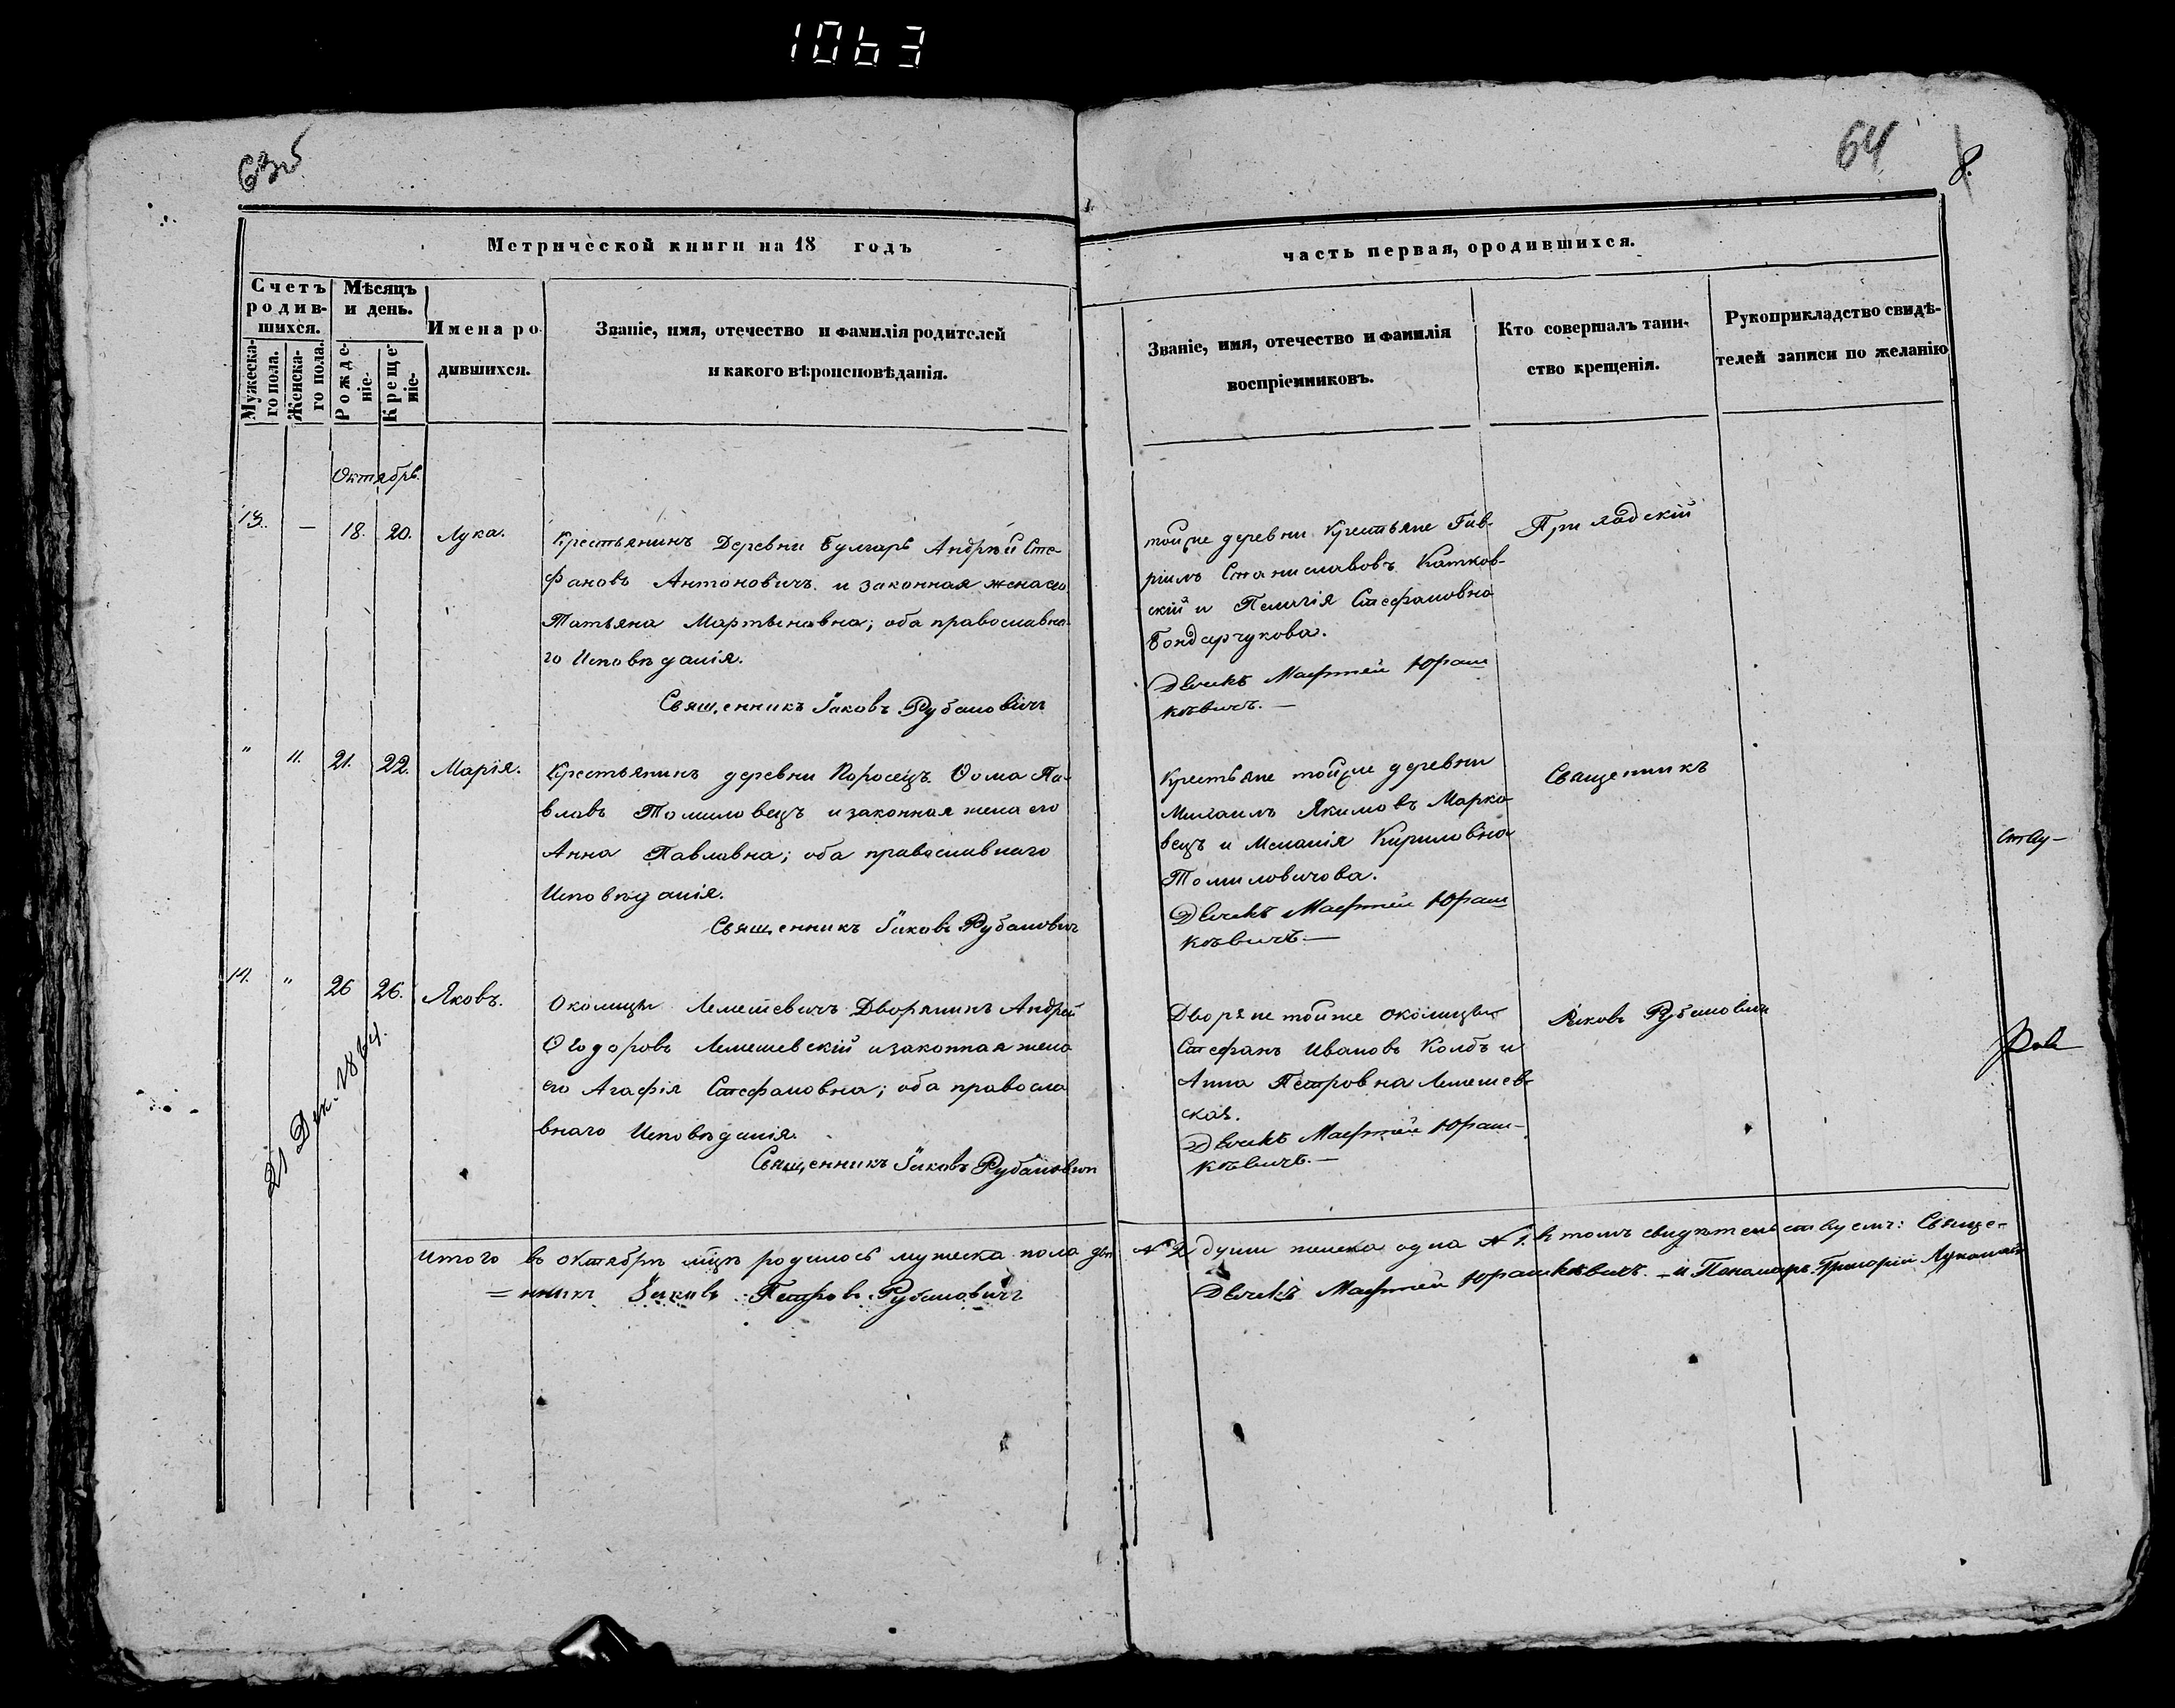 1063
63об
64
8.
Метрической книги на 18 годъ
часть первая, ородившихся.
Счетъ родив-шихся.
Мужеска-го пола.
Женска-го пола.
Мѣсяцъ и день.
Рожде-ніе.
Креще-ніе.
Имена ро-
дившихся.
Званіе, имя, отечество и фамилія родителей
и какого вѣроисповѣданія.
Званіе, имя, отечество и фамилія
воспріемниковъ.
Кто совершалъ таин-
ство крещенія.
Рукоприкладство свидѣ-
телей записи по желанію
Октябрь.
13. — 18. 20. Лука.
Крестьянинъ Деревни Булгары Андрей Сте-
фановъ Антоновичъ и законная жена его
Татьяна Мартыновна; оба православна-
го Исповѣданія.
Священникъ Іаковъ Рубановичъ
тойже деревни Крестьяне Гав-
ріилъ Станиславовъ Катков-
скій и Пелагія Стефановна
Бондарчукова.
Дьячекъ Мафтей Юраш
кѣвичъ. —
" 11. 21. 22. Марія.
Крестьянинъ деревни Поросецъ Ѳома Па-
вловъ Томиловецъ и законная жена его
Анна Павловна; оба православнаго
Исповѣданія.
Священникъ Іаковъ Рубановичъ
Крестьяне тойже деревни
Михаилъ Якимовъ Марко-
вецъ и Меланія Кириловна
Томиловичова.
Дьячекъ Мафтей Юраш
кѣвичъ. —
Священникъ
14. " 26 26. Яковъ.
Околицы Лемешевичъ Дворянинъ Андрей
Ѳеодоровъ Лемешевскій и законная жена
его Агафія Стефановна; оба правосла
внаго Исповѣданія.
Священникъ Іаковъ Рубановичъ
Дворяне тойже околицы
Стефанъ Ивановъ Колбъ и
Анна Петровна Лемешев-
ская.
Дьячекъ Мафтей Юраш-
кѣвичъ. —
Іаковъ Рубановичъ
21 Дек. 1864.
Итого въ октябрѣ мцѣ родилось мужеска пола двѣ № 2 души женска одна № 1. в томъ свидѣтельствуемъ: Свяще-
= нникъ Іаковъ Петровъ Рубановичъ
Дьячекъ Мафтей Юрашкѣвичъ. — и Пономарь Григорій